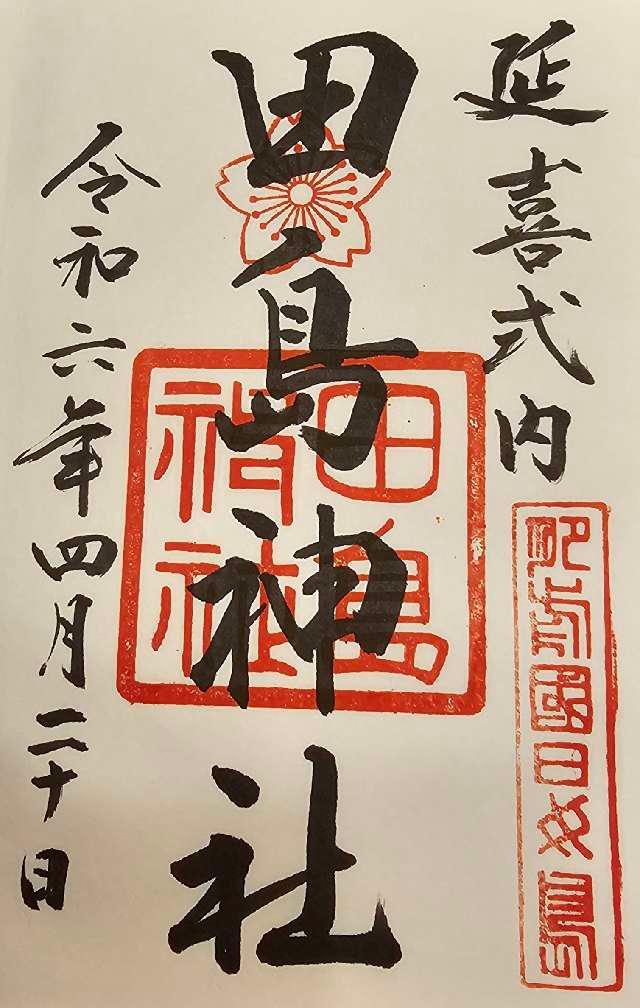 延喜式内
肥前國日女島
田島神社
田島
神社
令和六年四月二十日